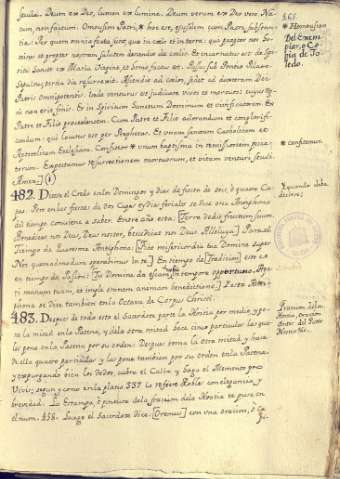 sęcula. Deum ex Deo, lumen ex lumine. Deum verum ex Deo vero Na-
tum, non factum. Omousion Patri, * hoc est, ejusdem cum Patre substan-
tię. Per quem omnia facta sunt, quę in cœlo et in terra: qui propter nos
et propter nostram salutem descendit de cœlis. Et incarnatus est de Spi-
ritu Sancto ex Maria Virgine, et homo factus est. Passus sub Pontio Pilato:
Sepultus, tertia die resurrexit. Ascendit ad cœlos, sedet ad dexteram Dei
Patris Omnipotentis. Inde venturus est judicare vivos et mortuos: cujus Reg-
ni non erit finis. Et in Spiritum Sanctum Dominum et vivificatorem. Ex
Patre et Filio procedentem. Cum Patre et Filio adorandum et conglorifi-
candum: qui locutus est per Prophetas. Et unam Sanctam Catholicam et
Apostolicam Ecclesiam. Confiteor * unum baptisma in remissionem pecca-
torum. Expectamus resurrectionem mortuorum, et vitam venturi sęculi.
Amen.] (1)
482. Dicese el Credo en los Domingos, y dias de fiesta de seis, ó quatro Ca-
pas. Pero en las fiestas de dos Capas, y dias feriales se dice una Antiphona
al tiempo conveniente a saber. Entre año esta: [Terra dedit fructum suum.
Benedicat nos Deus, Deus noster, benedicat nos Deus Alleluja] Para el
Tiempo de Quaresma Antiphona: [Fiat misericordia tua Domine super
Nos quemadmodum speravimus in te.] En tiempo de [Tradicion] esto es
en tiempo de Passion: [Tu Domine da escam nobis in tempore oportuno. Ape-
ri manum tuam, et imple omnem animam benedictione.] Y esta Anti-
phona se dice tambien en la Octava de Corpus Christi.
483. Despues de todo esto el Sacerdote parte la Hostia por medio, y po-
ne la mitad en la Patena, y de la otra mitad hace cinco particulas las que
las pone en la Patena por su orden: Despues toma la otra mitad, y hace
de ella quatro particulas, y las pone tambien por su orden en la Patena.
y expurgando bien los dedos, cubre el Caliz, y hace el Memento pro
Vivis; segun y como en la platia 337. lo refiere Robles con elegancia, y
brevedad. La Estampa, ó pintura de la fraccion de la Hostia se puso en
el num. 458. Luego el Sacerdote dice. [Oremus] con una oracion, ó Ca-
161.
* Homousion
Del Exem-
plar, o Co-
pia de To-
ledo.
* confitemur.
Y quando debe
decirse.
Fraccion de la
Hostia, Oracion
antes del Pater
Noster &c.